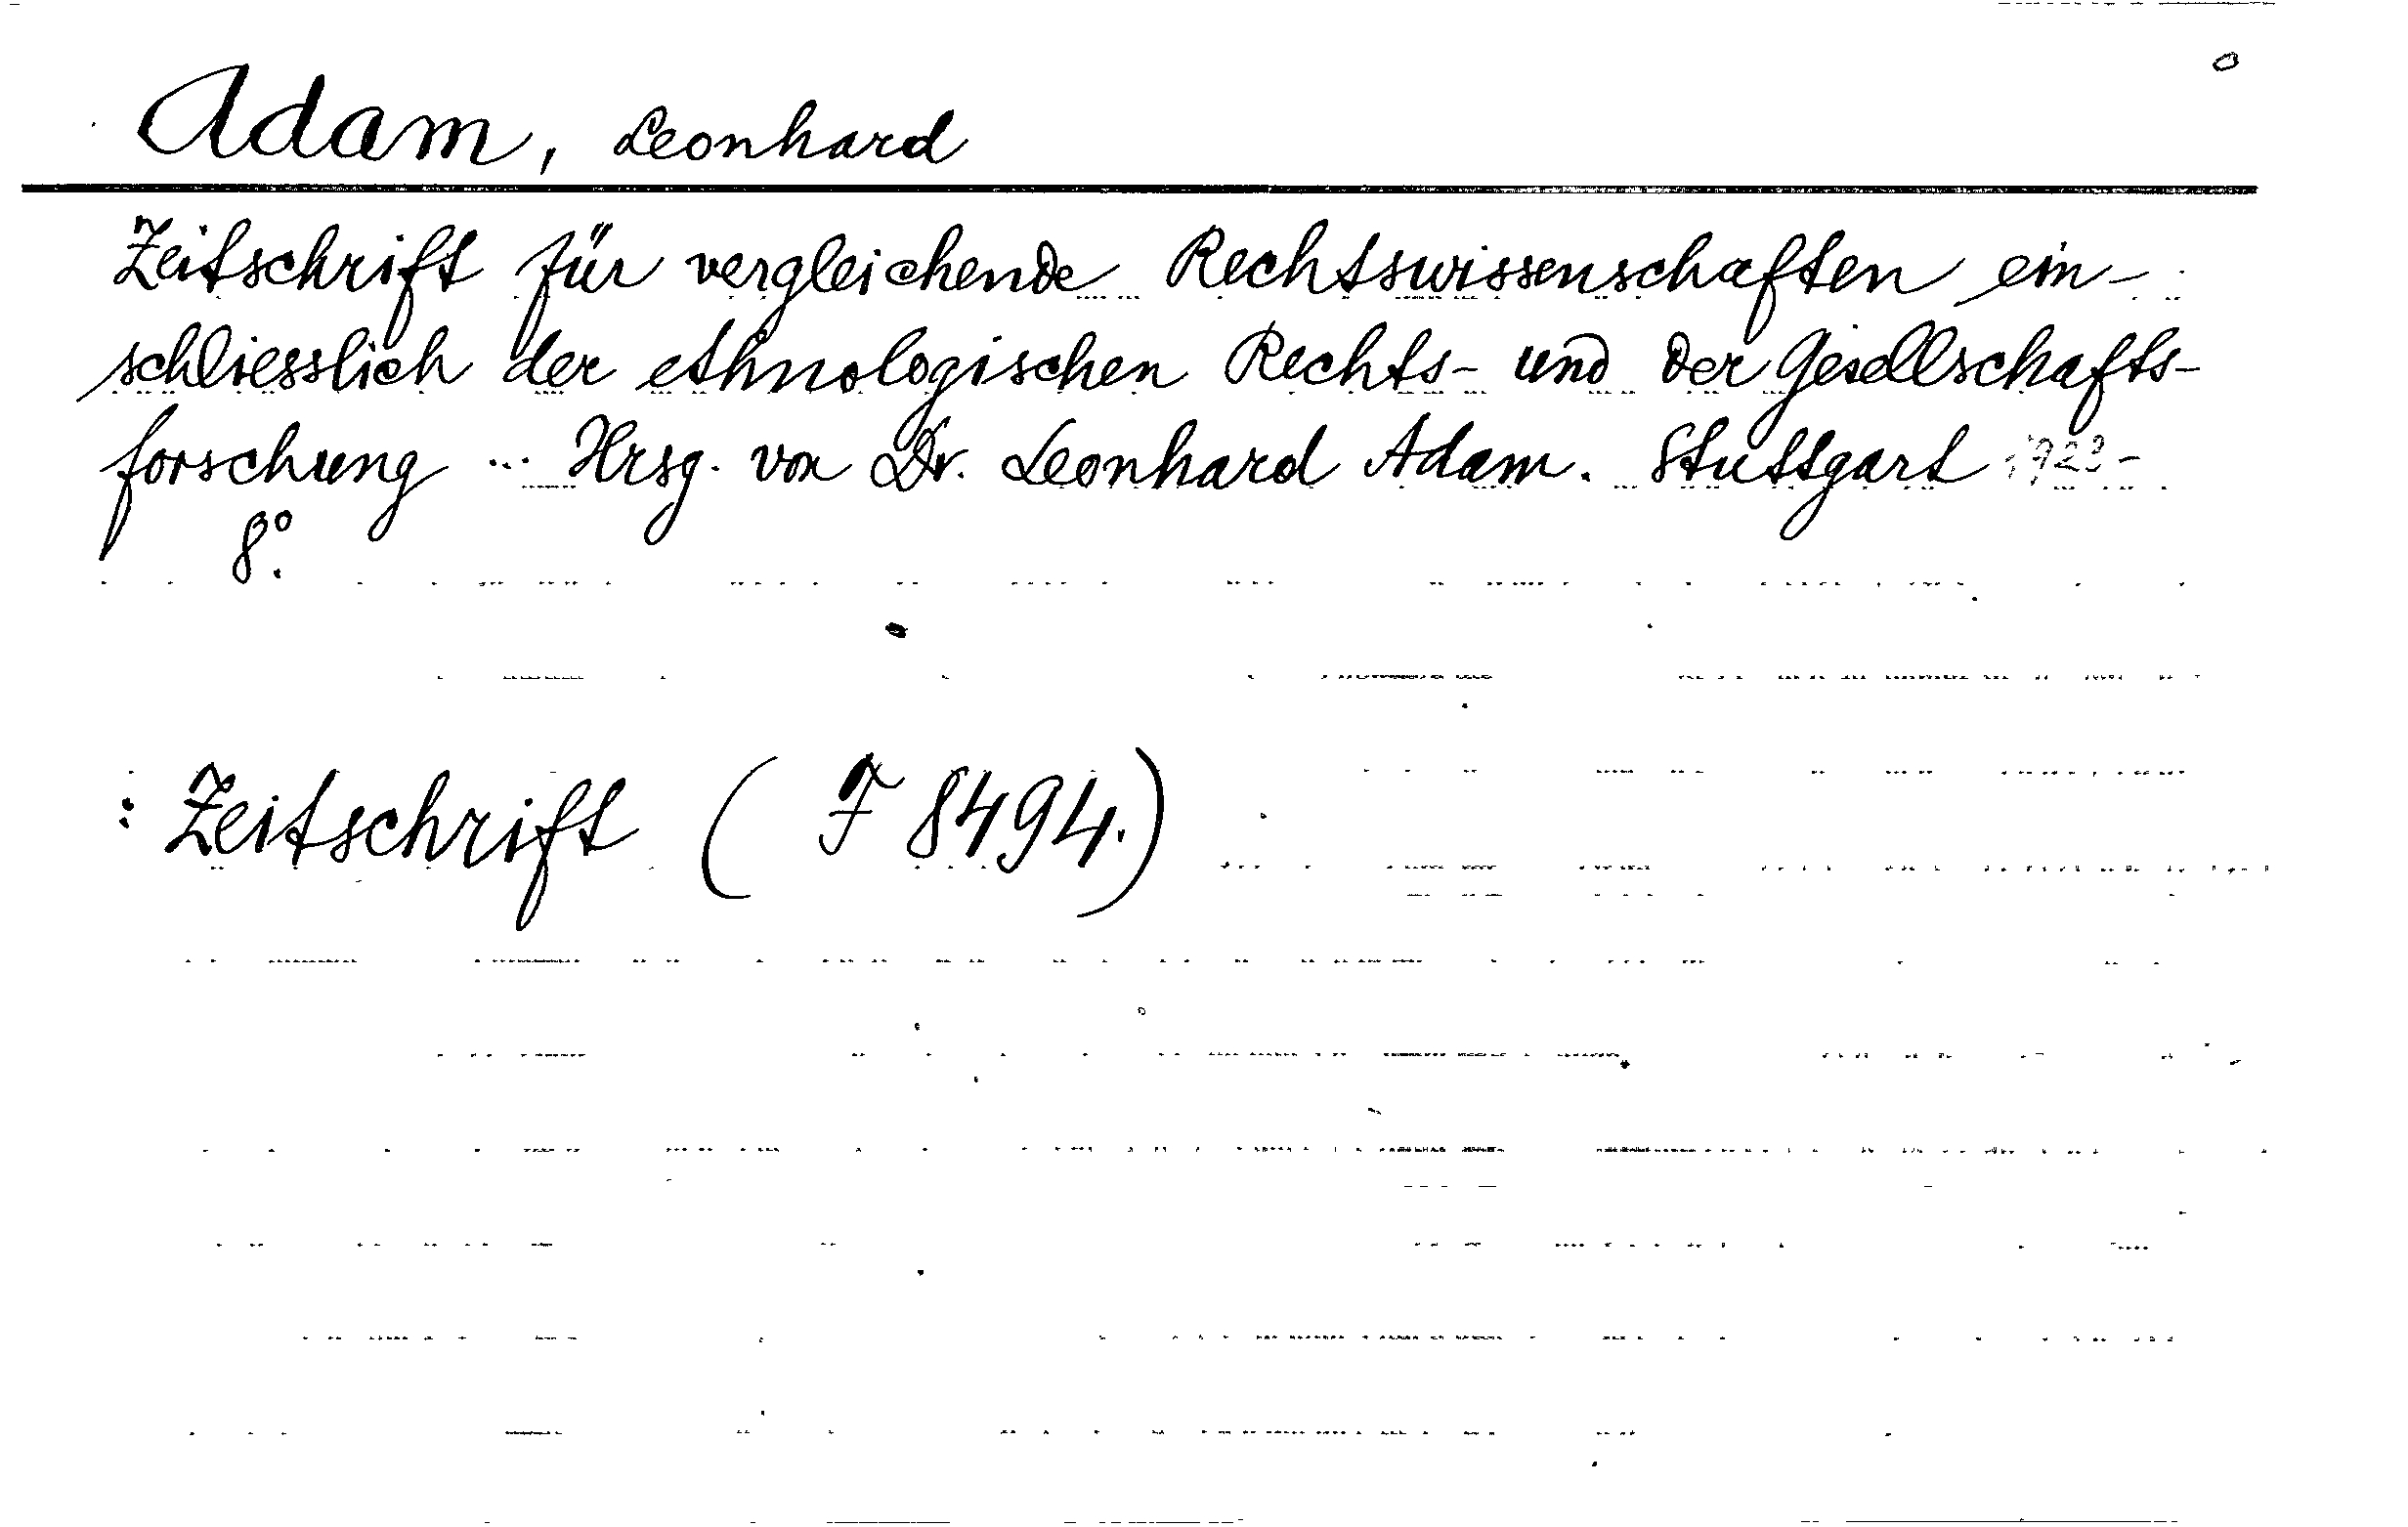 Adam, Leonhard
Zeitschrift für vergleichende Rechtswissenschaften ein-
schliesslich der ethnologischen Rechts- und der Gesellschafts-
forschung ... Hrsg. von Dr. Leonhard Adam. Stuttgart
8°.
: Zeitschrift ( F 8494.)